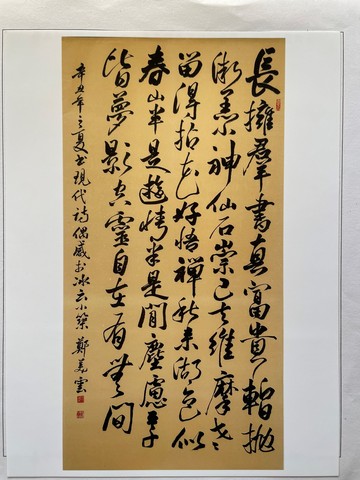 長擁羣書真富貴暫拋
神仙石崇已去維摩老
留得拈花好悟禪秋來湖色似
春山半是遊情半是閒塵慮
皆夢影空靈自在有無間
辛丑年之夏書現代詩偶感於冰雲小築 鄭美雲